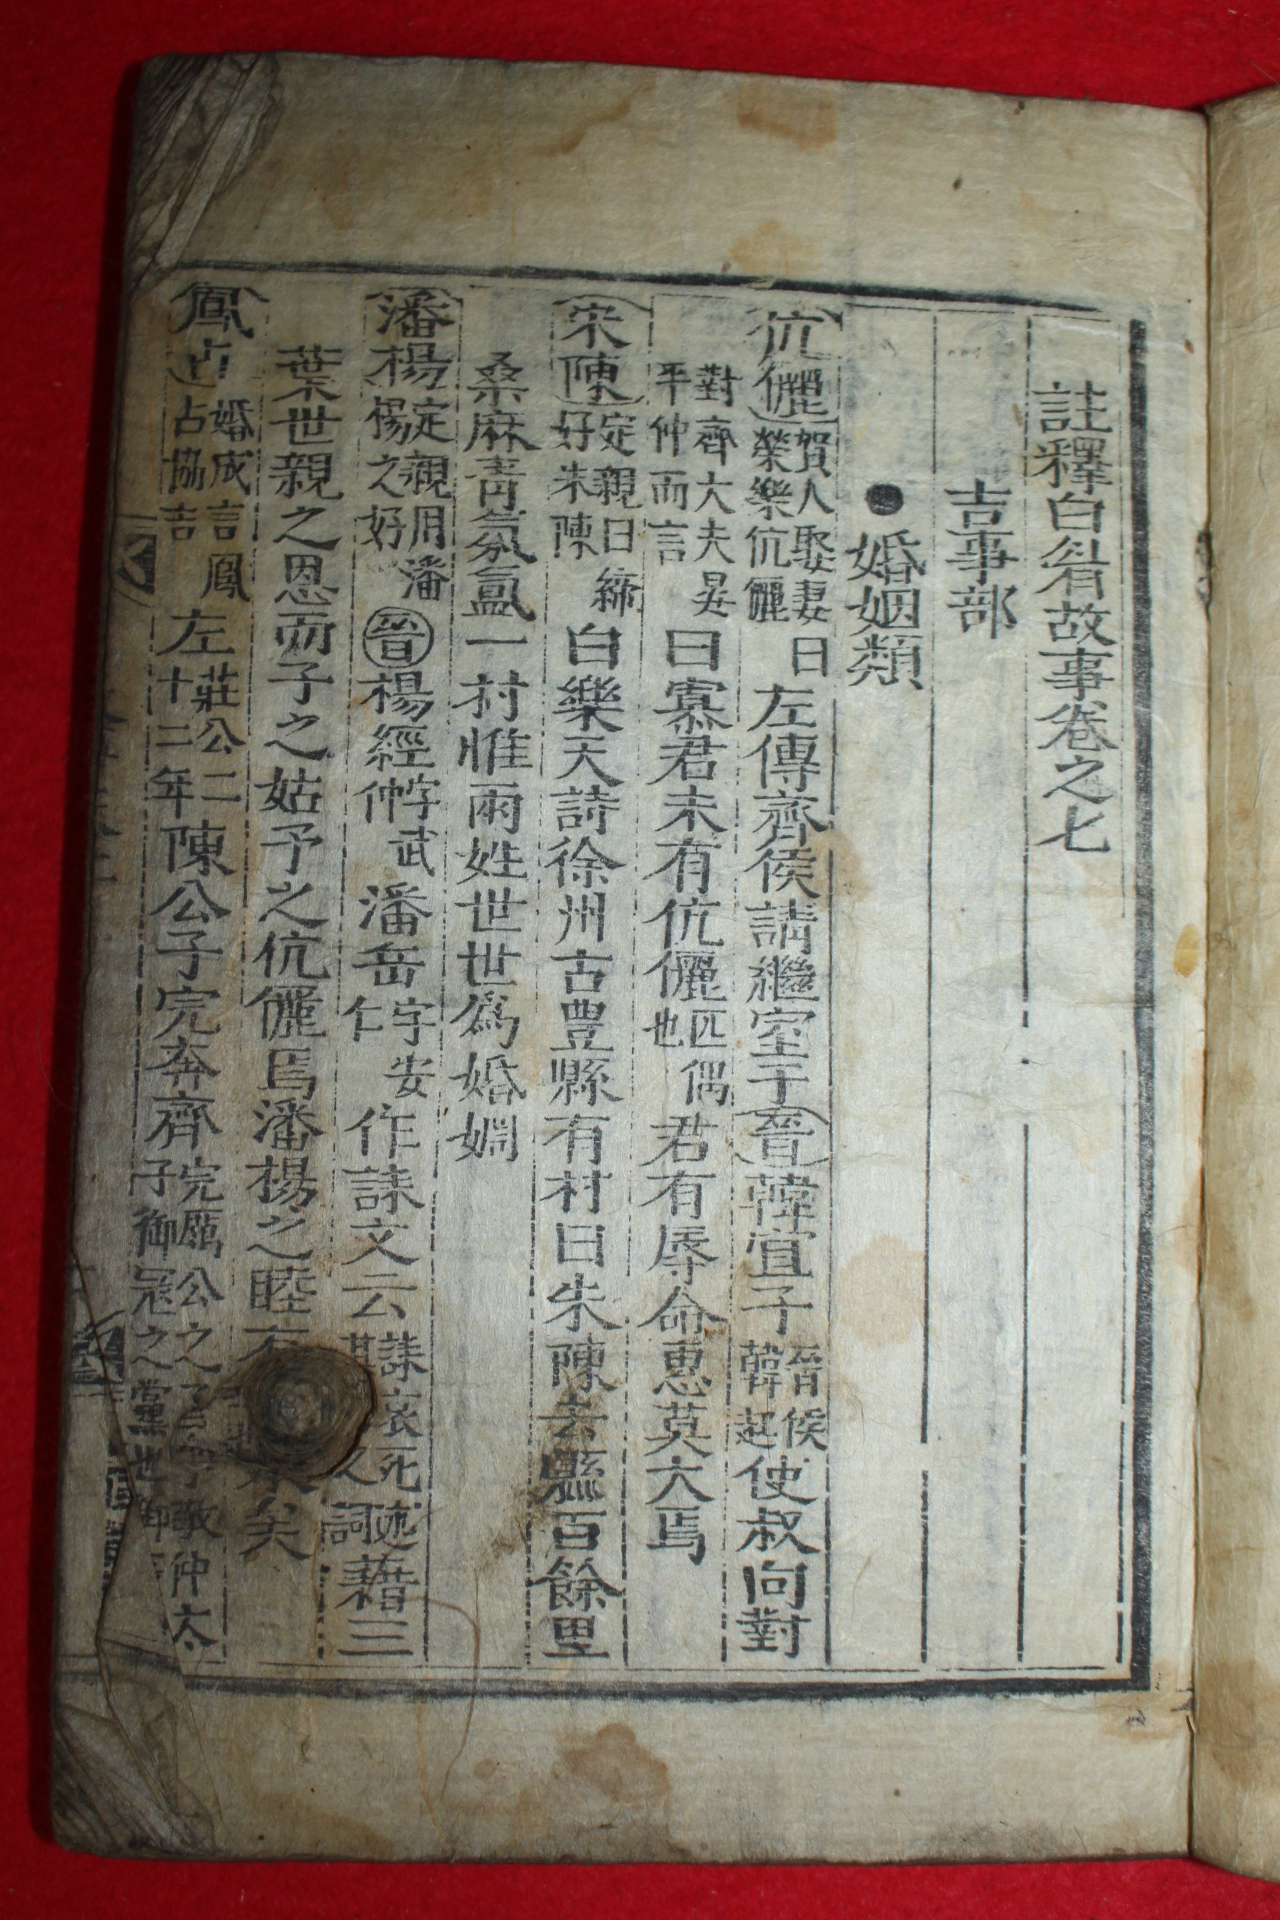 註釋白眉故事卷之七
吉事部
●婚姻類
伉儷賀人娶妻曰榮樂伉儷左傳齊侯請繼室于晉韓宣子晉侯韓起使叔向對
對齊大夫晏平仲而言曰寡君未有伉儷匹偶也君有辱命惠莫大焉
宋陳定親曰締好朱陳白樂天詩徐州古豊縣有村曰朱陳去縣百餘里
桑麻靑氛氳一村惟兩姓世世爲婚婣
潘楊定親用潘楊之好晉楊經字武仲潘岳字安仁作誄文云誄哀死述其詞藉三
葉世親之恩而子之姑予之伉儷焉潘楊之睦有矣
鳳占婚成言鳳占協吉左莊公二十二年陳公子完奔齊完厲公之子敬仲太子御冦之黨世